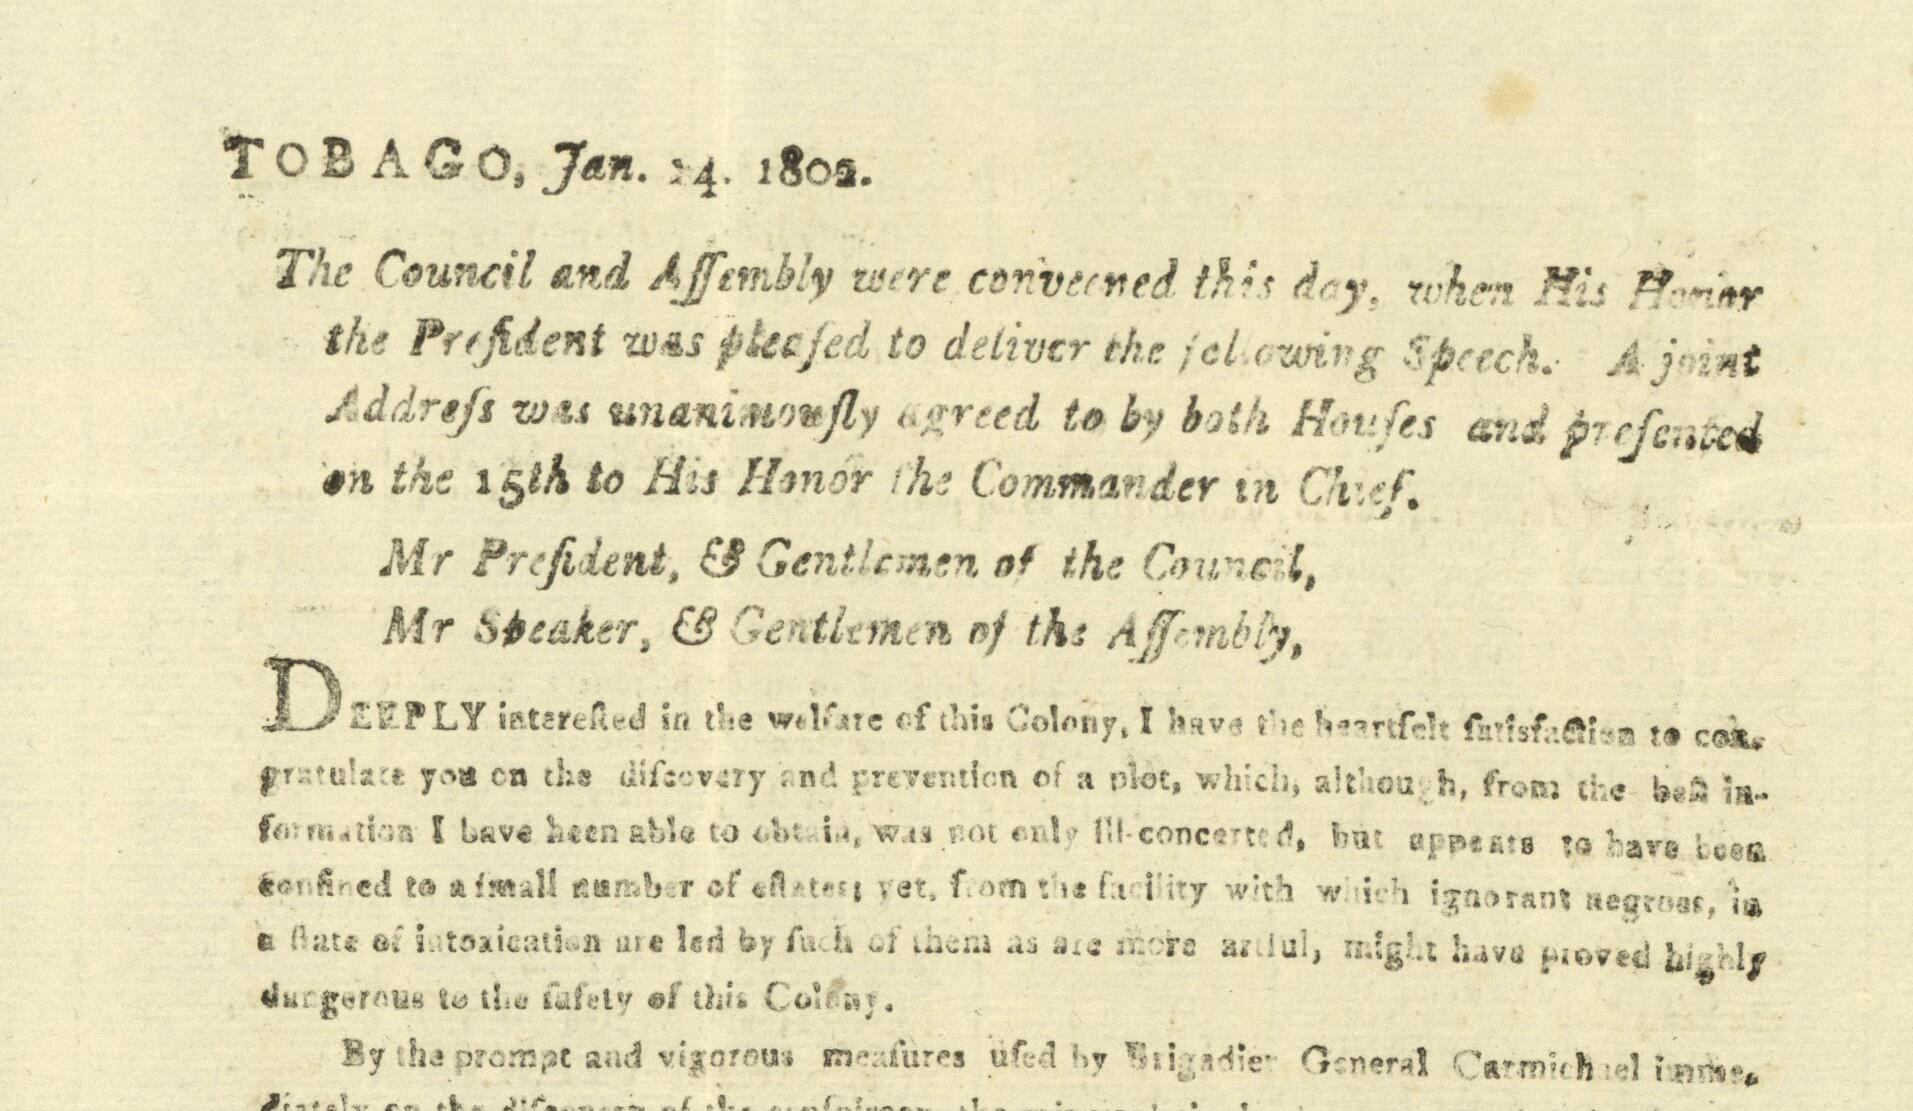 TOBAGO, Jan. 14. 1802.
The Council and Aſſembly were conveened this day, when His Honor
the Preſident was pleaſed to deliver the following Speech. A joint
Addreſs was unanimouſly agreed to by both Houſes and preſented
on the 15th to His Honor the Commander in Chief.
Mr Preſident, & Gentlemen of the Council,
Mr Speaker, & Gentlemen of the Aſſembly,
DEEPLY intereſted in the welfare of this Colony, I have the heartfelt ſatisfaction to con-
gratulate you on the diſcovery and prevention of a plot, which, although, from the beſt in-
formation I have been able to obtain, was not only ill-concerted, but appears to have been
confined to a ſmall number of eſtates; yet, from the facility with which ignorant negroes, in
a ſtate of intoxication are led by ſuch of them as are more artful, might have proved highly
dangerous to the ſafety of this Colony.
By the prompt and vigorous meaſures uſed by Brigadier General Carmichael imme-
diately on the diſcovery of the